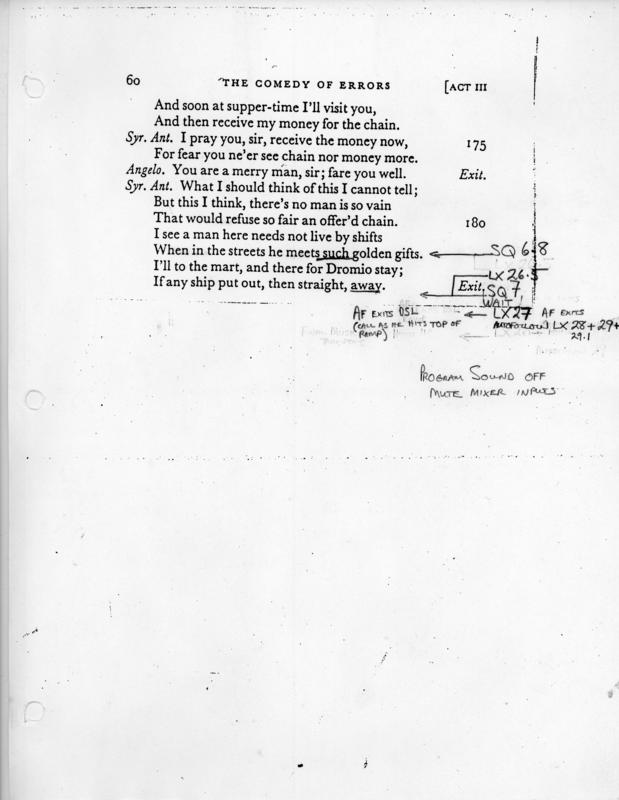 60 THE COMEDY OF ERRORS [ACT III
And soon at supper-time I'll visit you,
And then receive my money for the chain.
Syr. Ant. I pray you, sir, receive the money now, 175
For fear you ne'er see chain nor money more.
Angelo. You are a merry man, sir; fare you well. Exit.
Syr. Ant. What I should think of this I cannot tell;
But this I think, there's no man is so vain
That would refuse so fair an offer'd chain. 180
I see a man here needs not live by shifts
When in the streets he meets such golden gifts. SQ 6.8
I'll to the mart, and there for Dromio stay; LX 26.5
If any ship put out, then straight, away. Exit. SQ 7
WAIT
AF EXITS DSL LX27 AF EXITS
(CALL AS HE HITS TOP OF RAMP) AUTOFOLLOW LX 28 + 29 +
29.1
PROGRAM SOUND OFF
MUTE MIXER INPUTS